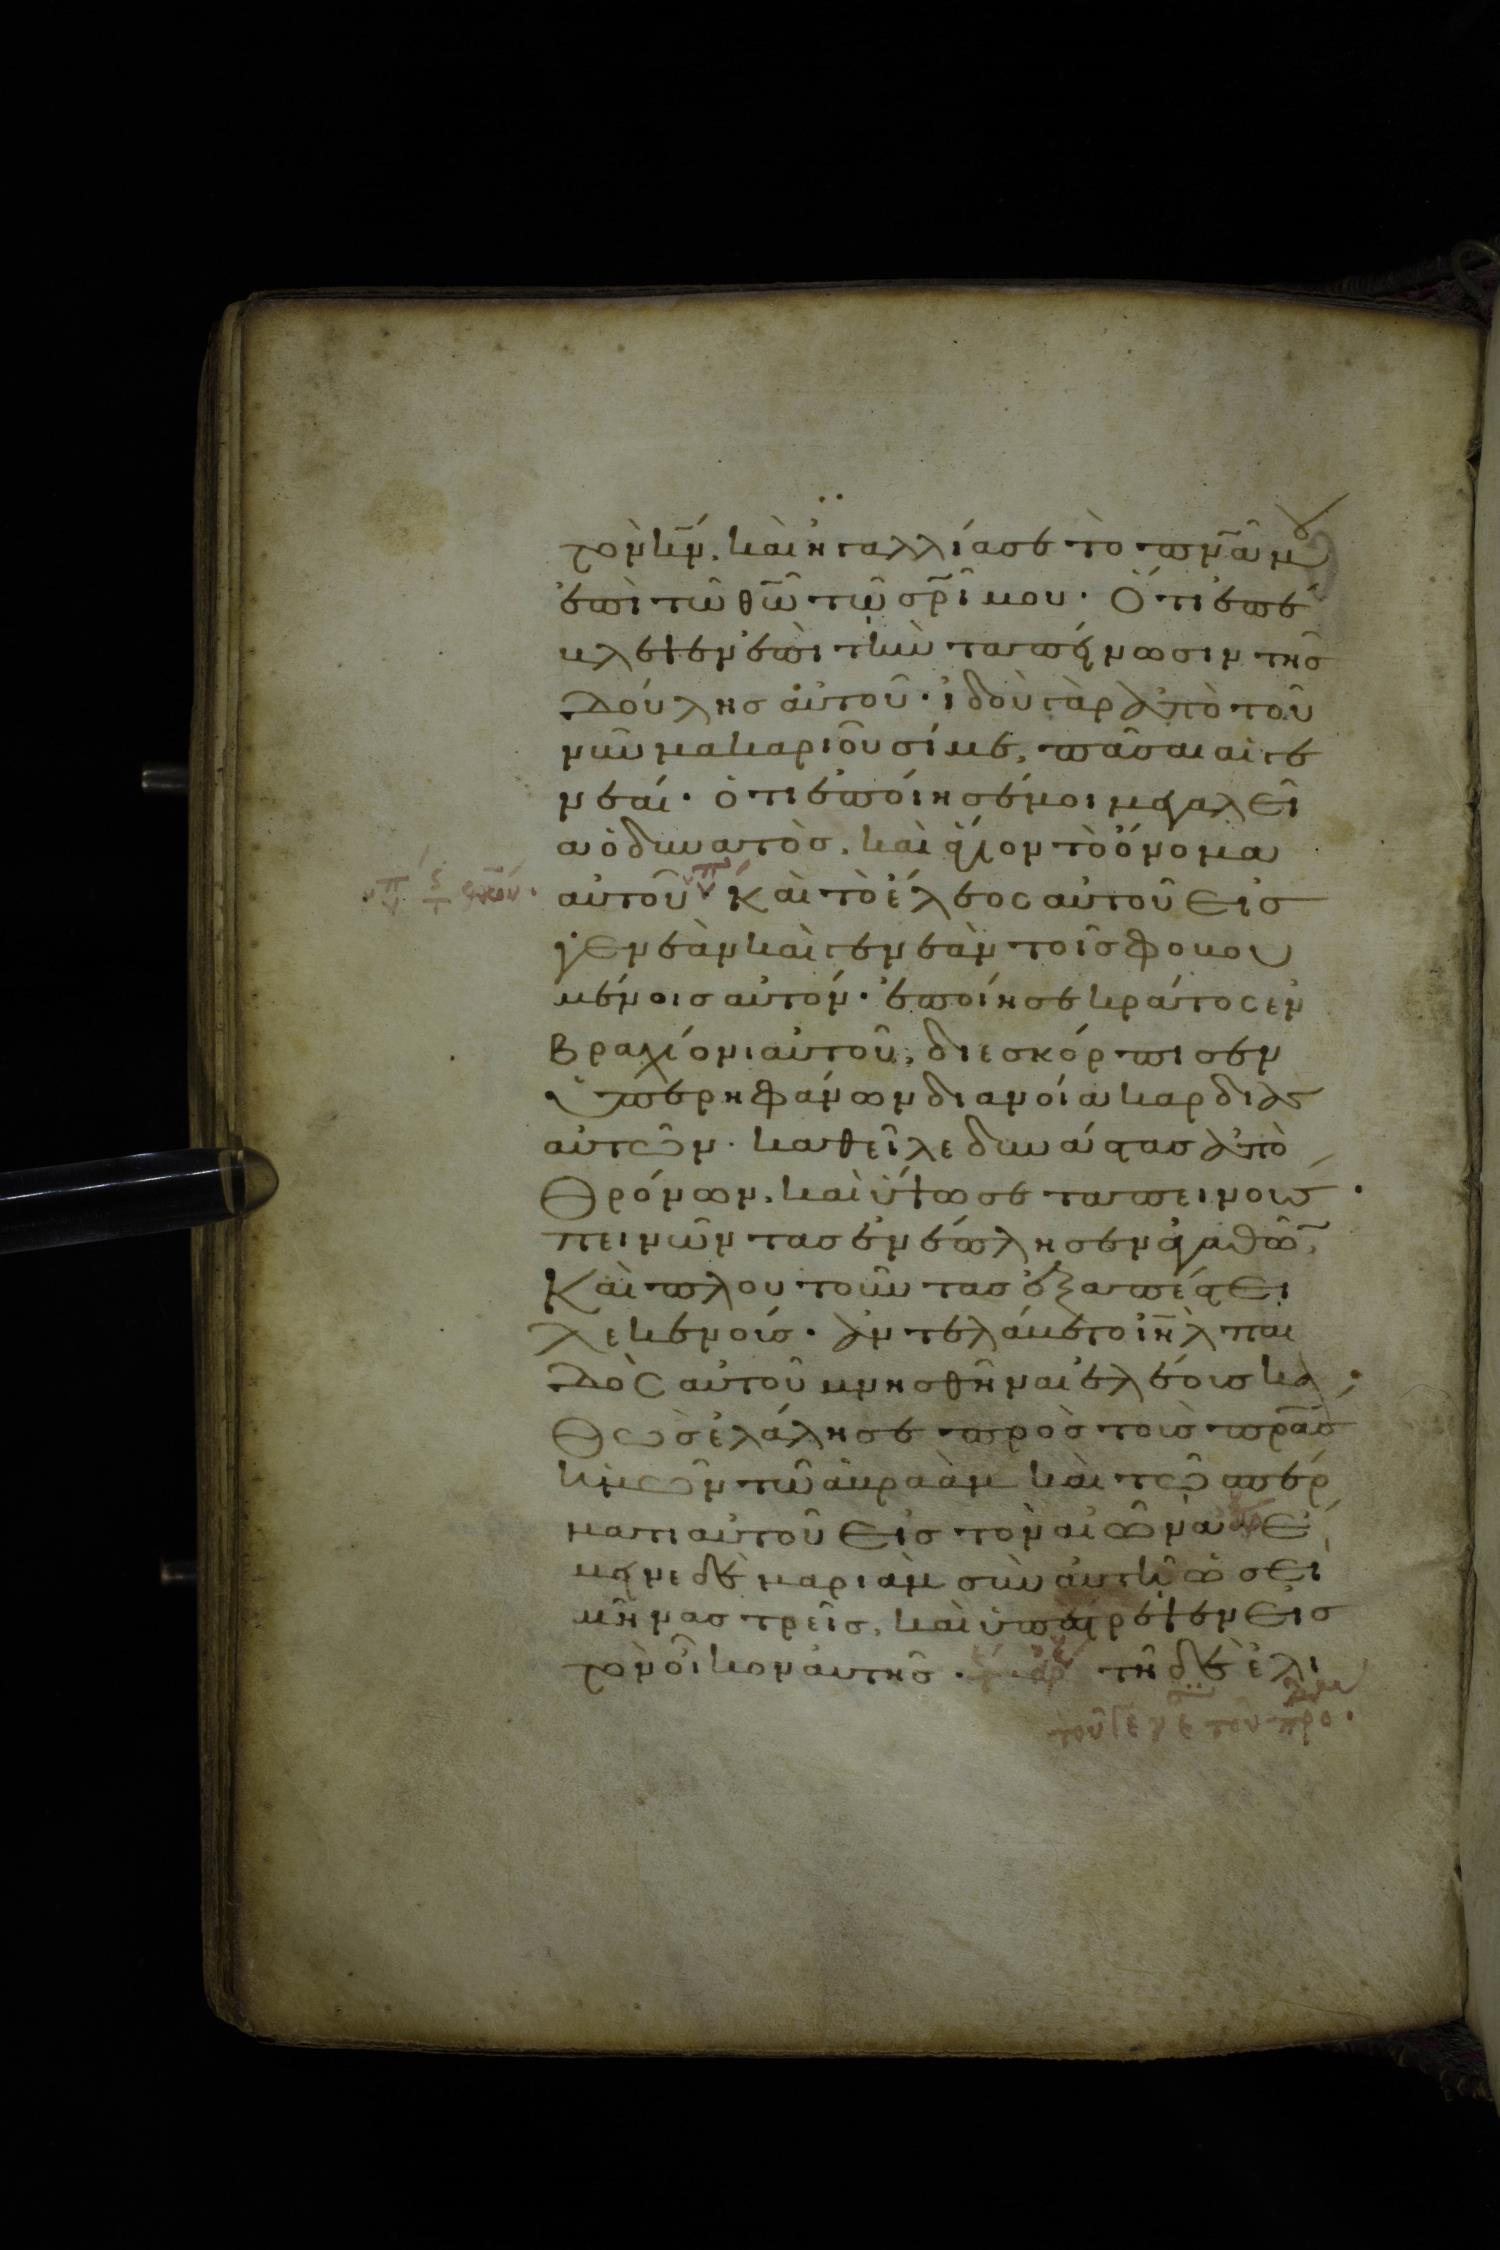 τὸν κ̅ν̅, καὶ ἠγαλλίασε τὸ π̅ν̅α̅ μου
ἐπὶ τῶ θ̅ω̅ τῶ σ̅ρ̅ι̅ μου· Ὅτι ἐπέ
βλεψεν ἐπὶ τὴν ταπείνωσιν τῆς
δούλης αὐτοῦ· ἰδοὺ γὰρ ἀπὸ τοῦ
νῦν μακαριοῦσί με, πᾶσαι αἱ γε
νεαί· ὅτι ἐποίησέ μοι μεγαλεῖ
α ὁ δυνατὸς, καὶ ἅγιον τὸ ὄνομα
αὐτοῦ Καὶ τὸ ἔλεος αὐτοῦ εἰς
γενεὰν καὶ γενεὰν τοῖς φοβου
μένοις αὐτόν· ἐποίησε κράτος ἐν
βραχίονι αὐτοῦ, διεσκόρπισεν
ὑπερηφάνων διανοία καρδίας
αὐτῶν· καθεῖλε δυνάστας ἀπὸ
Θρόνων, καὶ ὕψωσε ταπεινούς·
πεινῶντας ἐνέπλησεν ἀγαθῶν,
Καὶ πλουτοῦντας ἐξαπέστει
λε κενούς· ἀντελάβετο ι̅η̅λ̅ παι
δὸς αὐτοῦ μνησθῆναι ἐλέους κα
Θὼς ἐλάλησε πρὸς τοὺς π̅ρ̅α̅ς
ἡμῶν τῶ ἀβραὰμ καὶ τῶ σπέρ
ματι αὐτοῦ εἰς τὸν αἰῶνα· Ἔ
μεινε δὲ μαριὰμ σὺν αὐτῆ ὡσεὶ
μῆνας τρεῖς, καὶ ὑπέστρεψεν εἰς
τὸν οἶκον αὐτῆς· τῆ δὲ ἐλι